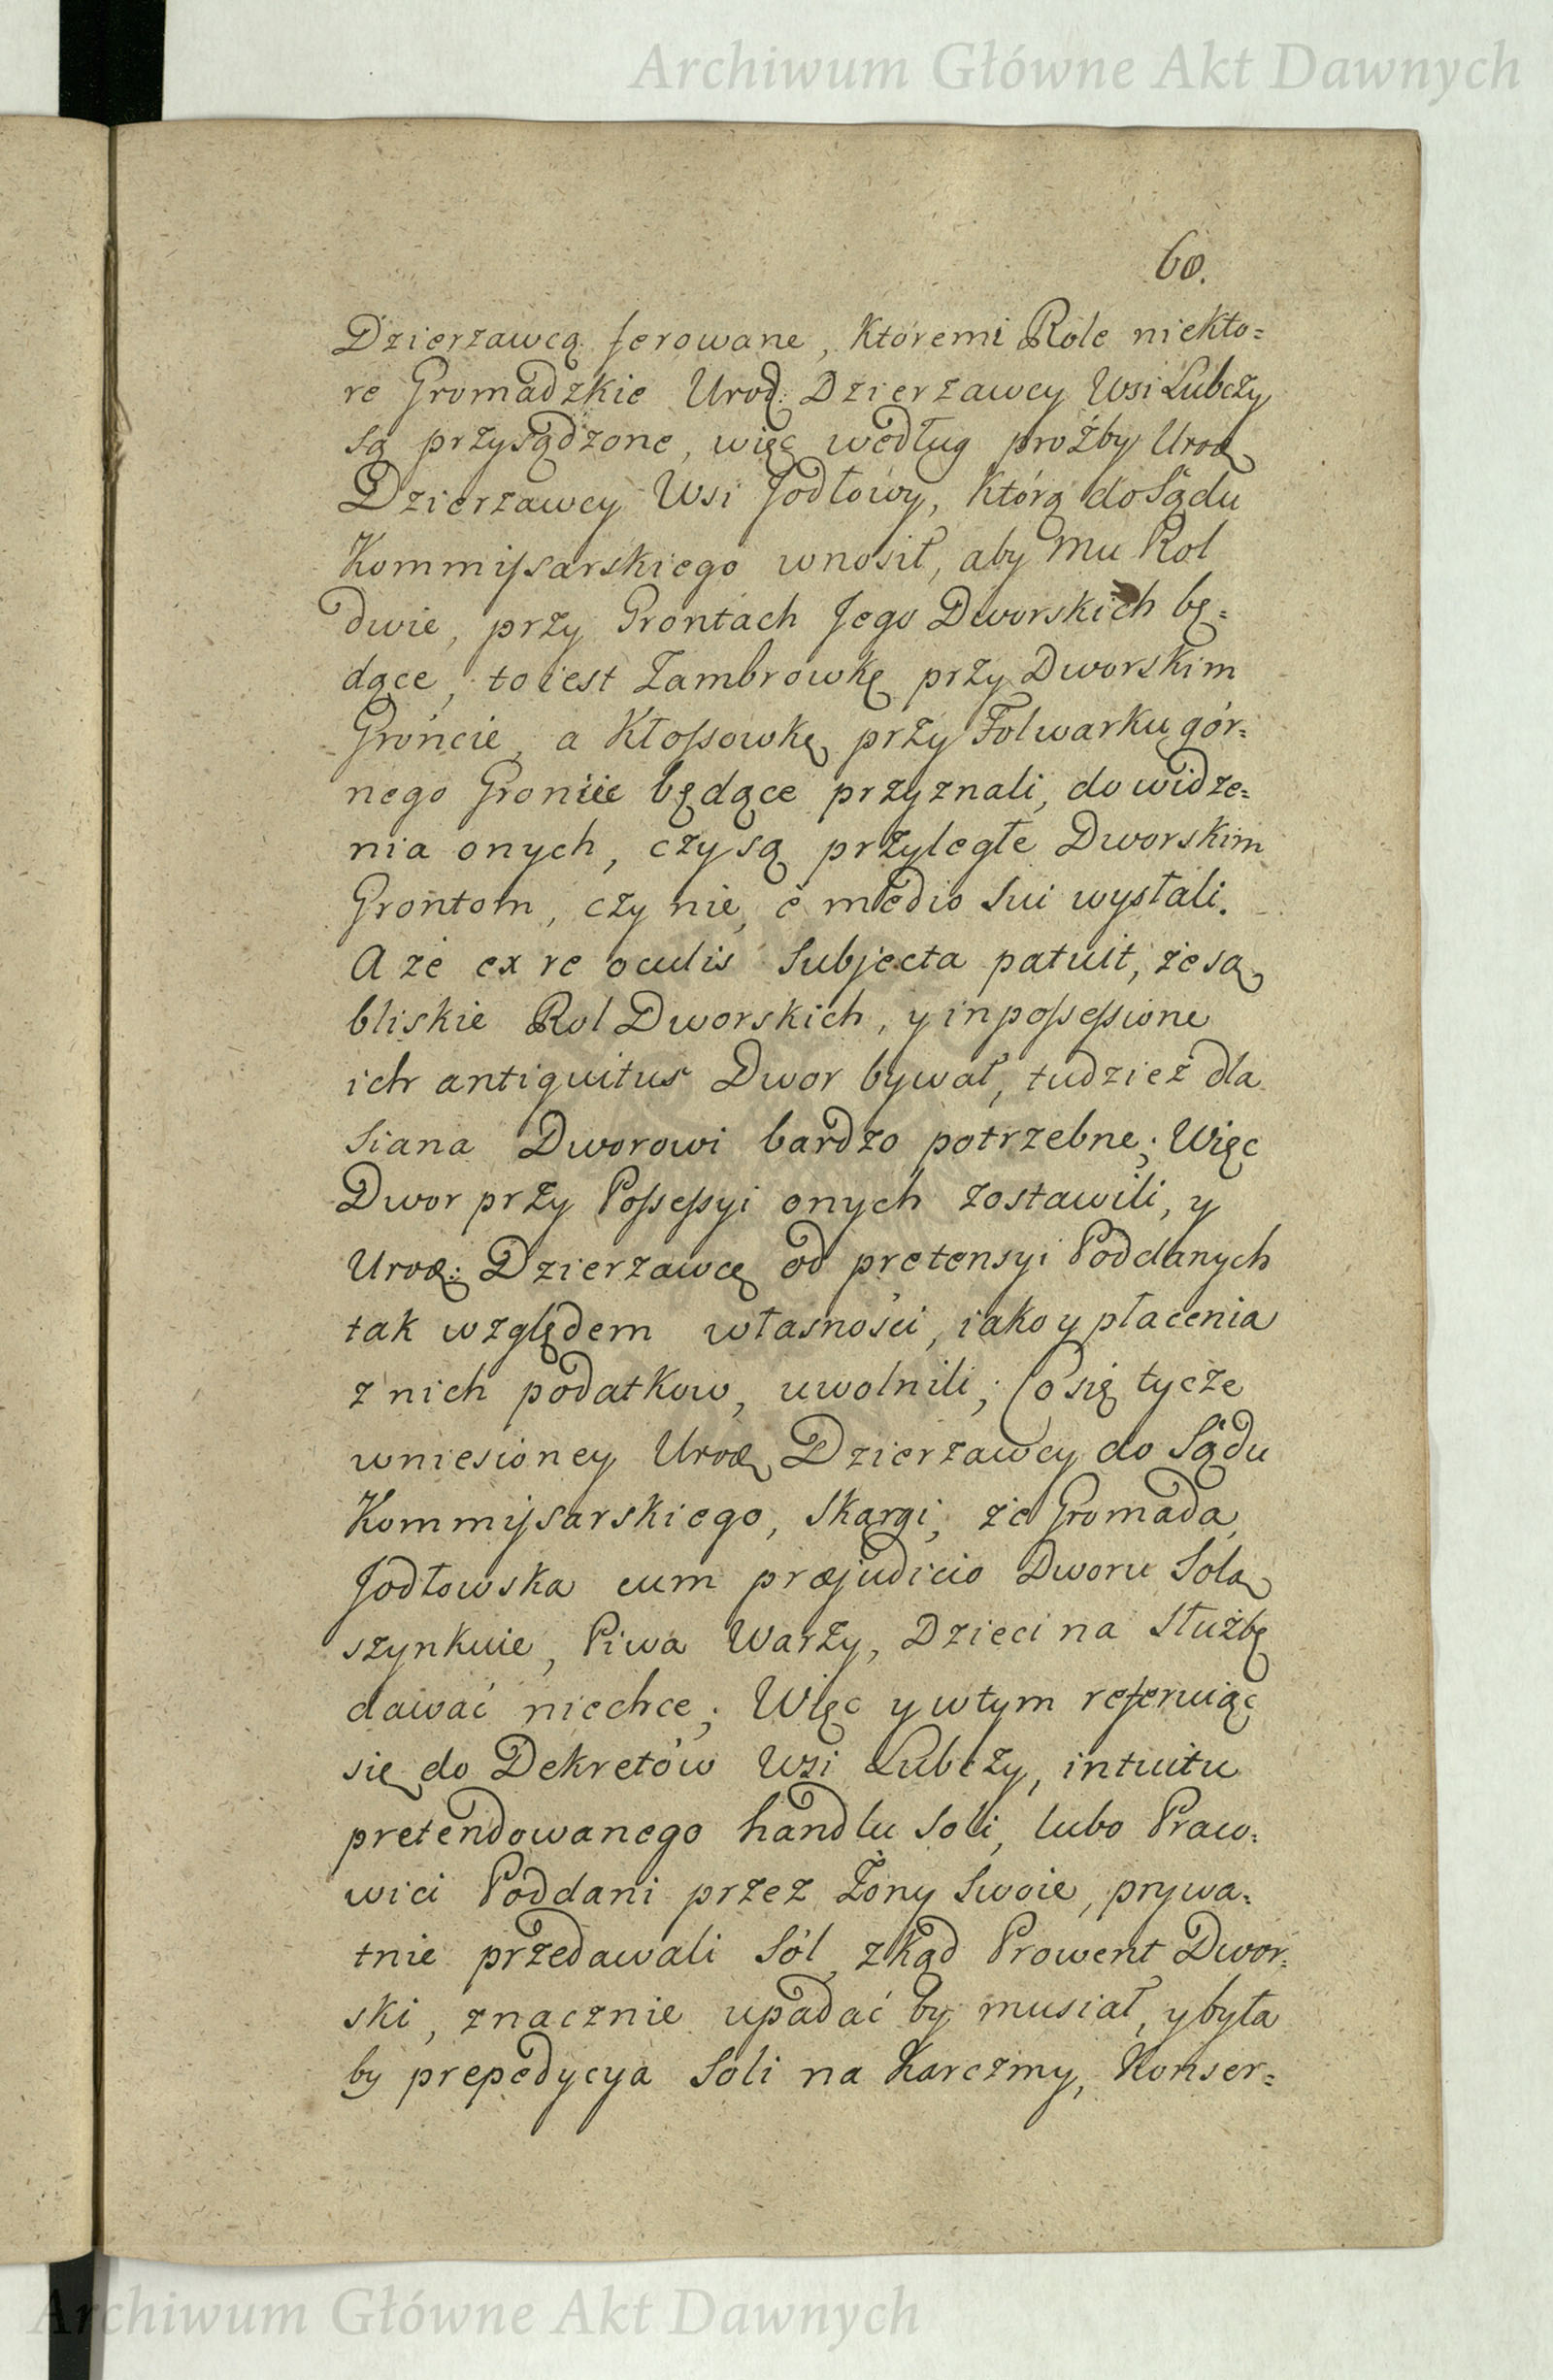 Archiwum Główne Akt Dawnych
60.
Dzierzawcą ferowane, Ktoremi Role niekto=
re Gromadzkie Urod: Dzierzawcy Wsi Lubczy
są przysądzone, więc według proźby Urod
Dzierzawcy Wsi Jodłowy, którą do Sądu
Kommissarskiego wnosił, aby Mu Rol
dwie, przy Grontach Jego Dworskich bę=
dące, to iest Zambrowkę przy Dworskim
Gróncie, a Kłossowkę przy Folwarku gór=
nego Groncie będące przyznali, do widze=
nia onych, czy są przyległe Dworskim
Grontom, czy nie, e medio Sui wysłali.
A że ex re oculis Subjecta patuit, że są
bliskie Rol Dworskich, y in possessione
ich antiquitus Dwor bywał, tudzież dla
Siana Dworowi bardzo potrzebne; Więc
Dwor przy Possessyi onych zostawili, y
Urod: Dzierzawcę od pretensyi Poddanych
tak względem własności, iako y płacenia
z nich podatkow, uwolnili; Co się tycze
wniesioney Urod Dzierzawcy do Sądu
Kommissarskiego, Skargi, że Gromada
Jodłowska cum præjudicio Dworu Solą
szynkuie, Piwa Warzy, Dzieci na Służbę
dawać niechce; Więc y w tym referuiąc
się do Dekretów Wsi Lubczy, intuitu
pretendowanego handlu Soli, lubo Praw=
wici Poddani przez Żony Swoie, prywa=
tnie przedawali Sól, zkąd Prowent Dwor=
ski, znacznie upadać by musiał, y była
by prepedycya Soli na Karczmy, Konser=
Archiwum Główne Akt Dawnych